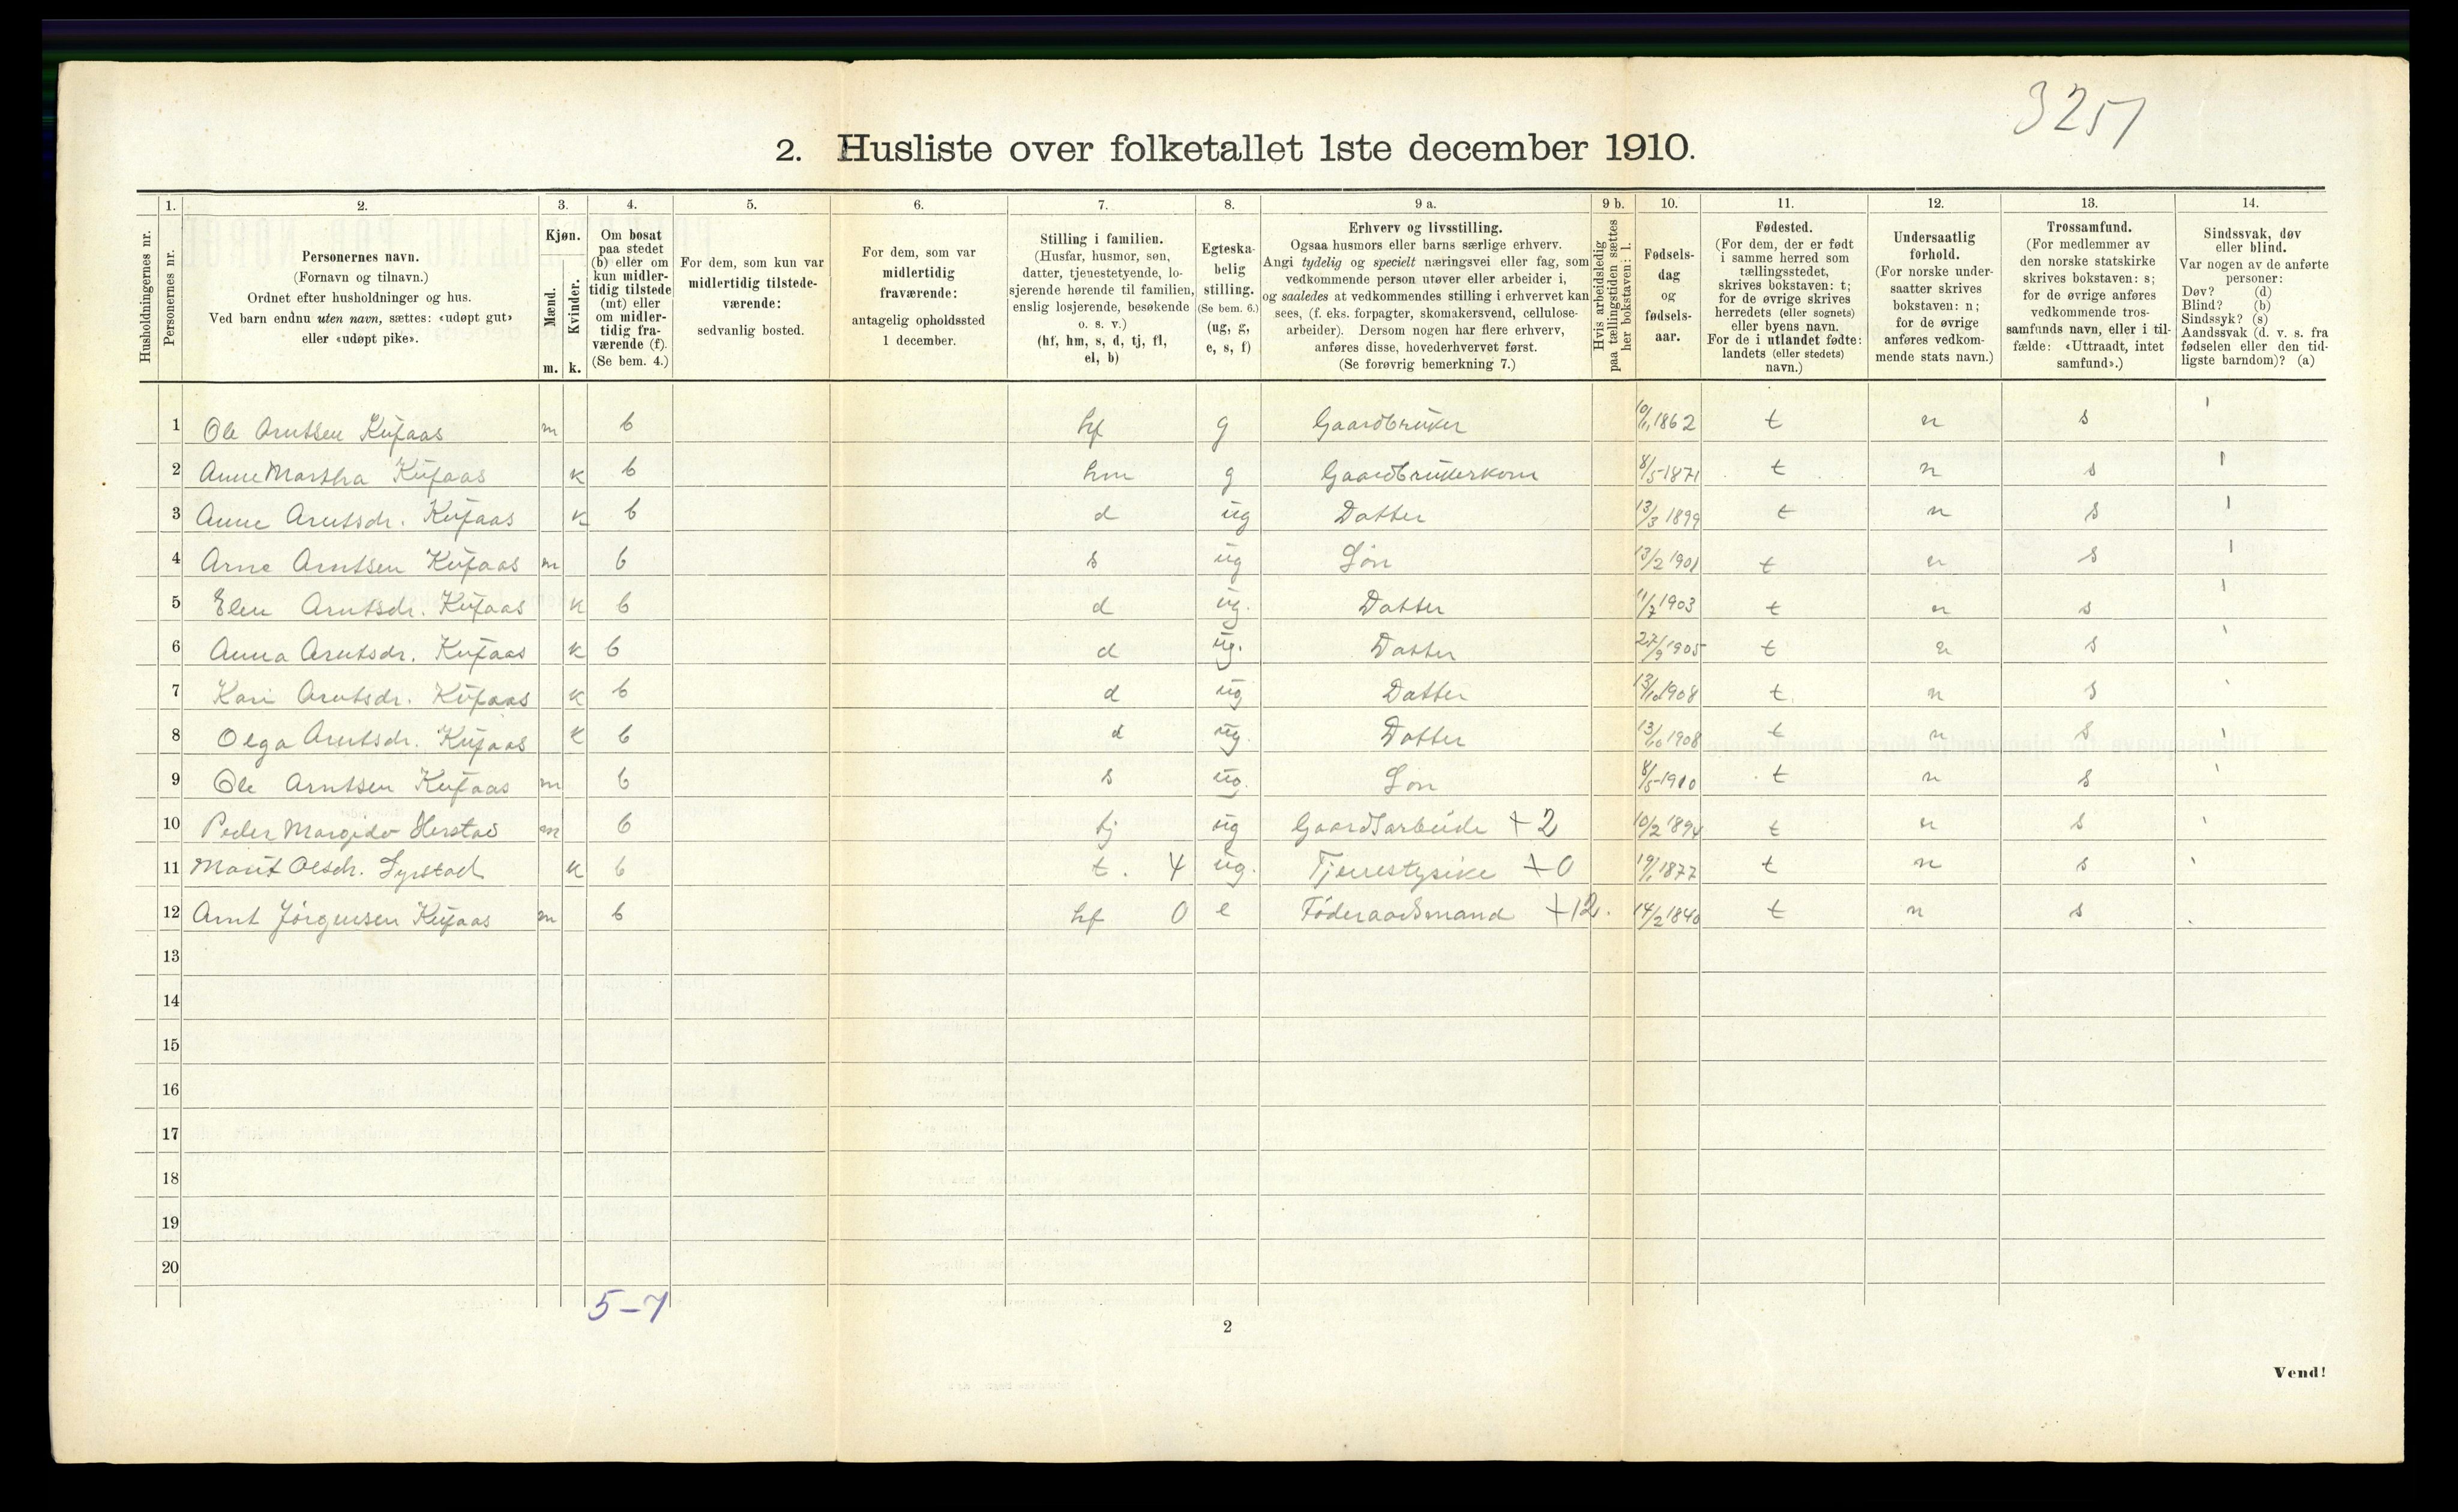 3251
2. Husliste over folketallet 1ste december 1910.
Husholdningernes nr.
1. Personernes nr.
2. Personernes navn.
(Fornavn og tilnavn.)
Ordnet efter husholdninger og hus.
Ved barn endnu uten navn, sættes: «udøpt gut»
eller «udøpt pike».
3. Kjøn.
Mænd. m.
Kvinder. k.
4. Om bosat
paa stedet
(b) eller om
kun midler-
tidig tilstede
(mt) eller
om midler-
tidig fra-
værende (f).
(Se bem. 4.)
5. For dem, som kun var
midlertidig tilstede-
værende:
sedvanlig bosted.
6. For dem, som var
midlertidig
fraværende:
antagelig opholdssted
1 december.
7. Stilling i familien.
(Husfar, husmor, søn,
datter, tjenestetyende, lo-
sjerende hørende til familien,
enslig losjerende, besøkende
o. s. v.)
(hf, hm, s, d, tj, fl,
el, b)
8. Egteska-
belig
stilling.
(Se bem. 6.)
(ug, g,
e, s, f)
9 a. Erhverv og livsstilling.
Ogsaa husmors eller barns særlige erhverv.
Angi tydelig og specielt næringsvei eller fag, som
vedkommende person utøver eller arbeider i,
og saaledes at vedkommendes stilling i erhvervet kan
sees, (f. eks. forpagter, skomakersvend, cellulose-
arbeider). Dersom nogen har flere erhverv,
anføres disse, hovederhvervet først.
(Se forøvrig bemerkning 7.)
9 b. Hvis arbeidsledig
paa tællingstiden sættes
her bokstaven: l.
10. Fødsels-
dag
og
fødsels-
aar.
11. Fødested.
(For dem, der er født
i samme herred som
tællingsstedet,
skrives bokstaven: t;
for de øvrige skrives
herredets (eller sognets)
eller byens navn.
For de i utlandet fødte:
landets (eller stedets)
navn.)
12. Undersaatlig
forhold.
(For norske under-
saatter skrives
bokstaven: n;
for de øvrige
anføres vedkom-
mende stats navn.)
13. Trossamfund.
(For medlemmer av
den norske statskirke
skrives bokstaven: s;
for de øvrige anføres
vedkommende tros-
samfunds navn, eller i til-
fælde: «Uttraadt, intet
samfund».)
14. Sindssvak, døv
eller blind.
Var nogen av de anførte
personer:
Døv? (d)
Blind? (b)
Sindssyk? (s)
Aandssvak (d. v. s. fra
fødselen eller den tid-
ligste barndom)? (a)
1 Ole Arntsen Kufaas m b hf g Gaardbruker 10/1 1862 t n s
2 Anne Martha Kufaas k b hm g Gaardbrukerkone 8/5-1871 t n s
3 Anne Arntsdr. Kufaas k b d ug Datter 13/3 1899 t n s
4 Arne Arntsen Kufaas m b s ug Søn 13/2 1901 t n s
5 Elen Arntsdr. Kufaas k b d ug. Datter 11/7 1903 t n s
6 Anna Arntsdr. Kufaas k b d ug. Datter 27/9 1905 t n s
7 Kari Arntsdr. Kufaas k b d ug Datter 13/10 1908 t n s
8 Olga Arntsdr. Kufaas k b d ug. Datter 13/10 1908 t n s
9 Ole Arntsen Kufaas m b s ug. Søn 8/5-1910 t n s
10 Peder Margido Herstad m b tj ug Gaardsarbeide +2 10/2 1894 t n s
11 Marit Olsdr. Syrstad k b t. 4 ug. Tjenestepike +0 19/1 1877 t n s
12 Arnt Jørgensen Kufaas m b hf 0 e Føderaadsmand +12. 14/2 1840 t n s
13
14
15
16
17
18
19
20
5-7
2
Vend!